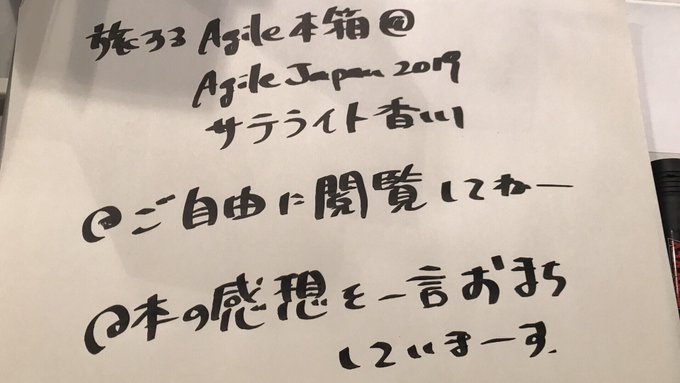 旅するAgile本箱@
Agile Japan 2019
サテライト香川
@ご自由に閲覧してねー
@本の感想を一言おまち
していまーす.